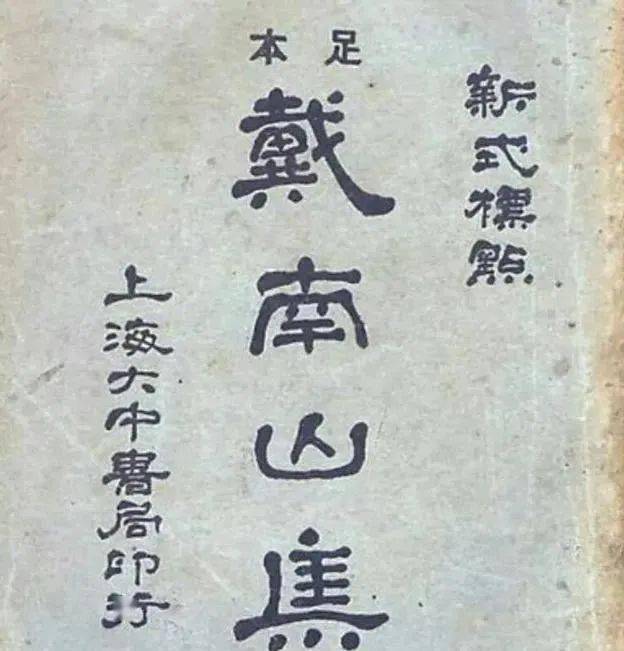 新式標點
足本
戴南山集
上海大中書局印行